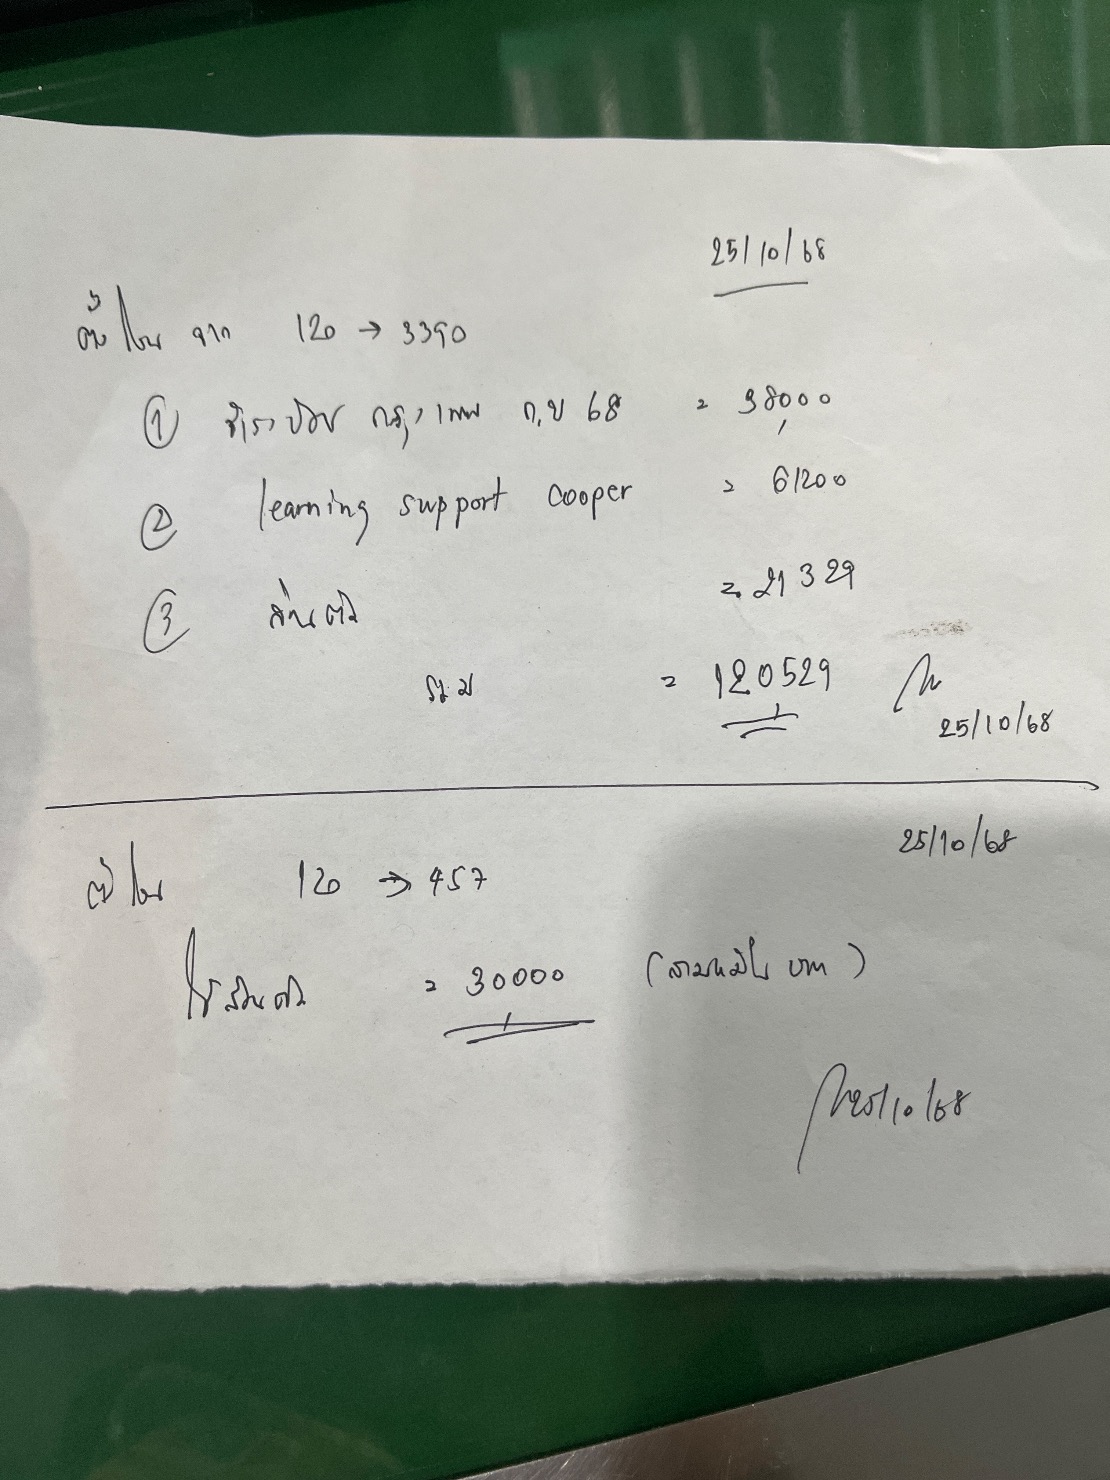 25/10/68
ตั๋วโอน จาก 120 → 3390
① ชำระ กรุงเทพ ก.ย 68 = 38000
② learning support cooper = 61200
③ ส่วนตัว = 21329
รวม = 120529
25/10/68
25/10/68
ตั๋วโอน 120 → 457
ใช้ส่วนตัว = 30000 (สามหมื่น บาท)
25/10/68